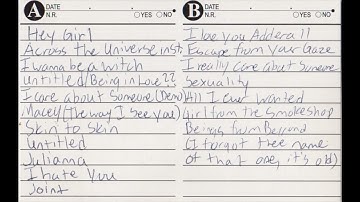 A DATE
N.R. ○YES ●NO
Hey Girl
Across the Universe inst.
I wanna be a witch
Untitled/Being in Love??
I care about Someone (Demo)
Macey (The way I see you)
Skin to Skin
Untitled
Julianna
I hate You
Joint
B DATE
N.R. ○YES ○NO●
I love you Adderall
Escape from Your Gaze
I really care about Someone
Sexuality
All I Ever Wanted
Girl from the Smoke shop
Beings from Beyond
(I forgot thee name
of that one, it's old)